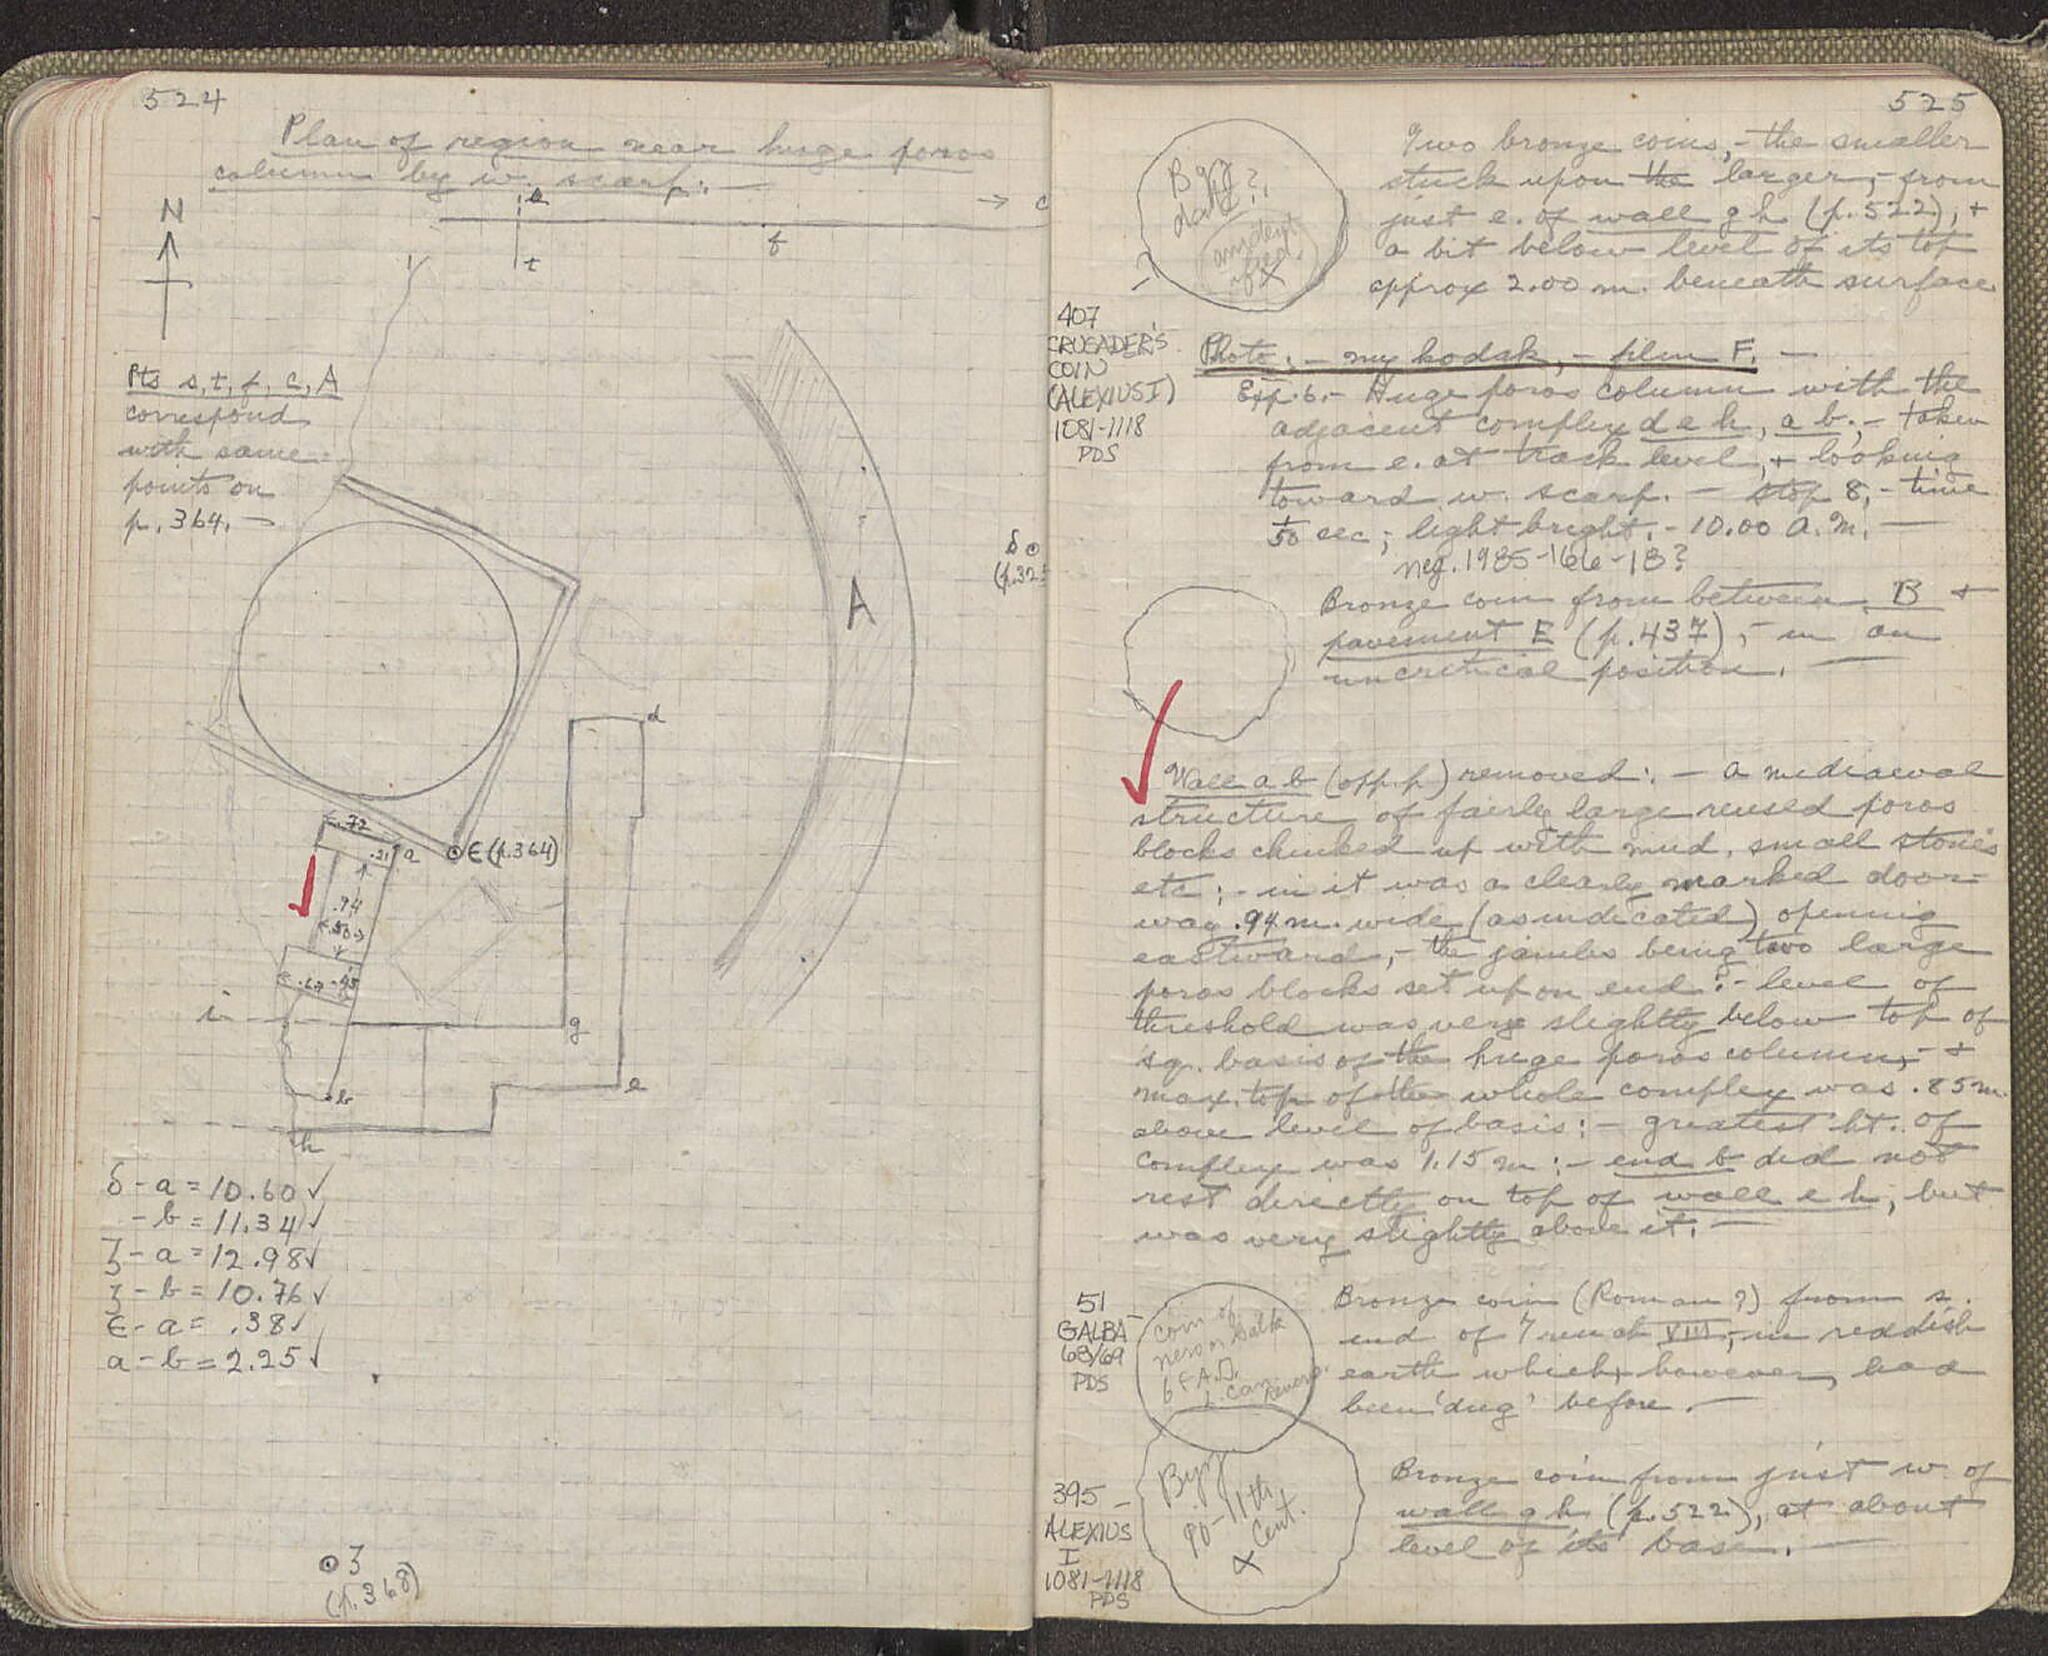 524
Plan of region near huge poros
column by w. scarf: —
N
s
→ c
f
t
Pts s, t, f, c, A
correspond
with same
points on
p. 364. —
A
δ ⊙
d
.72
.21
a
⊙ ϵ (p.364)
.94
.50
.45
i
g
e
b
h
δ - a = 10.60 ✓
- b = 11.34 ✓
ζ - a = 12.98 ✓
ζ - b = 10.76 ✓
ϵ - a = .38 ✓
a - b = 2.25 ✓
⊙ ζ
(p. 368)
525
Two bronze coins, - the smaller
stuck upon the larger, - from
just e. of wall g h (p. 522), +
a bit below level of its top
approx 2.00 m. beneath surface
Byz
dated?
407
CRUSADER'S
COIN
(ALEXIUS I)
1081-1118
PDS
Photo: - my kodak, - film F. —
Exp. 6. - Huge poros column with the
adjacent complex d e h, a b; - taken
from e. at track level, + looking
toward w. scarf. — stop 8, - time
1/50 sec; light bright. - 10.00 A.M. —
neg. 1985-166-18?
Bronze coin from between B +
pavement E (p. 437), - in an
uncritical position. —
Wall a b (opp. p) removed: - a mediaeval
structure of fairly large reused poros
blocks chinked up with mud, small stones
etc; - in it was a clearly marked door-
way .94 m. wide (as indicated) opening
eastward, - the jambs being two large
poros blocks set up on end: - level of
threshold was very slightly below top of
sq. basis of the huge poros column, - +
max. top of the whole complex was .85 m.
above level of basis: - greatest ht. of
complex was 1.15 m: - end b did not
rest directly on top of wall e h, but
was very slightly above it. —
51 –
GALBA
68/69
PDS
coin of
Nero or Galba
Bronze coin (Roman?) from s.
end of Trench VIII, - in reddish
earth which, however, had
been 'dug' before. —
395 –
ALEXIUS
I
1081-1118
PDS
Byz
10-11th
Cent.
x
Bronze coin from just w. of
wall g h (p. 522), at about
level of its base. —